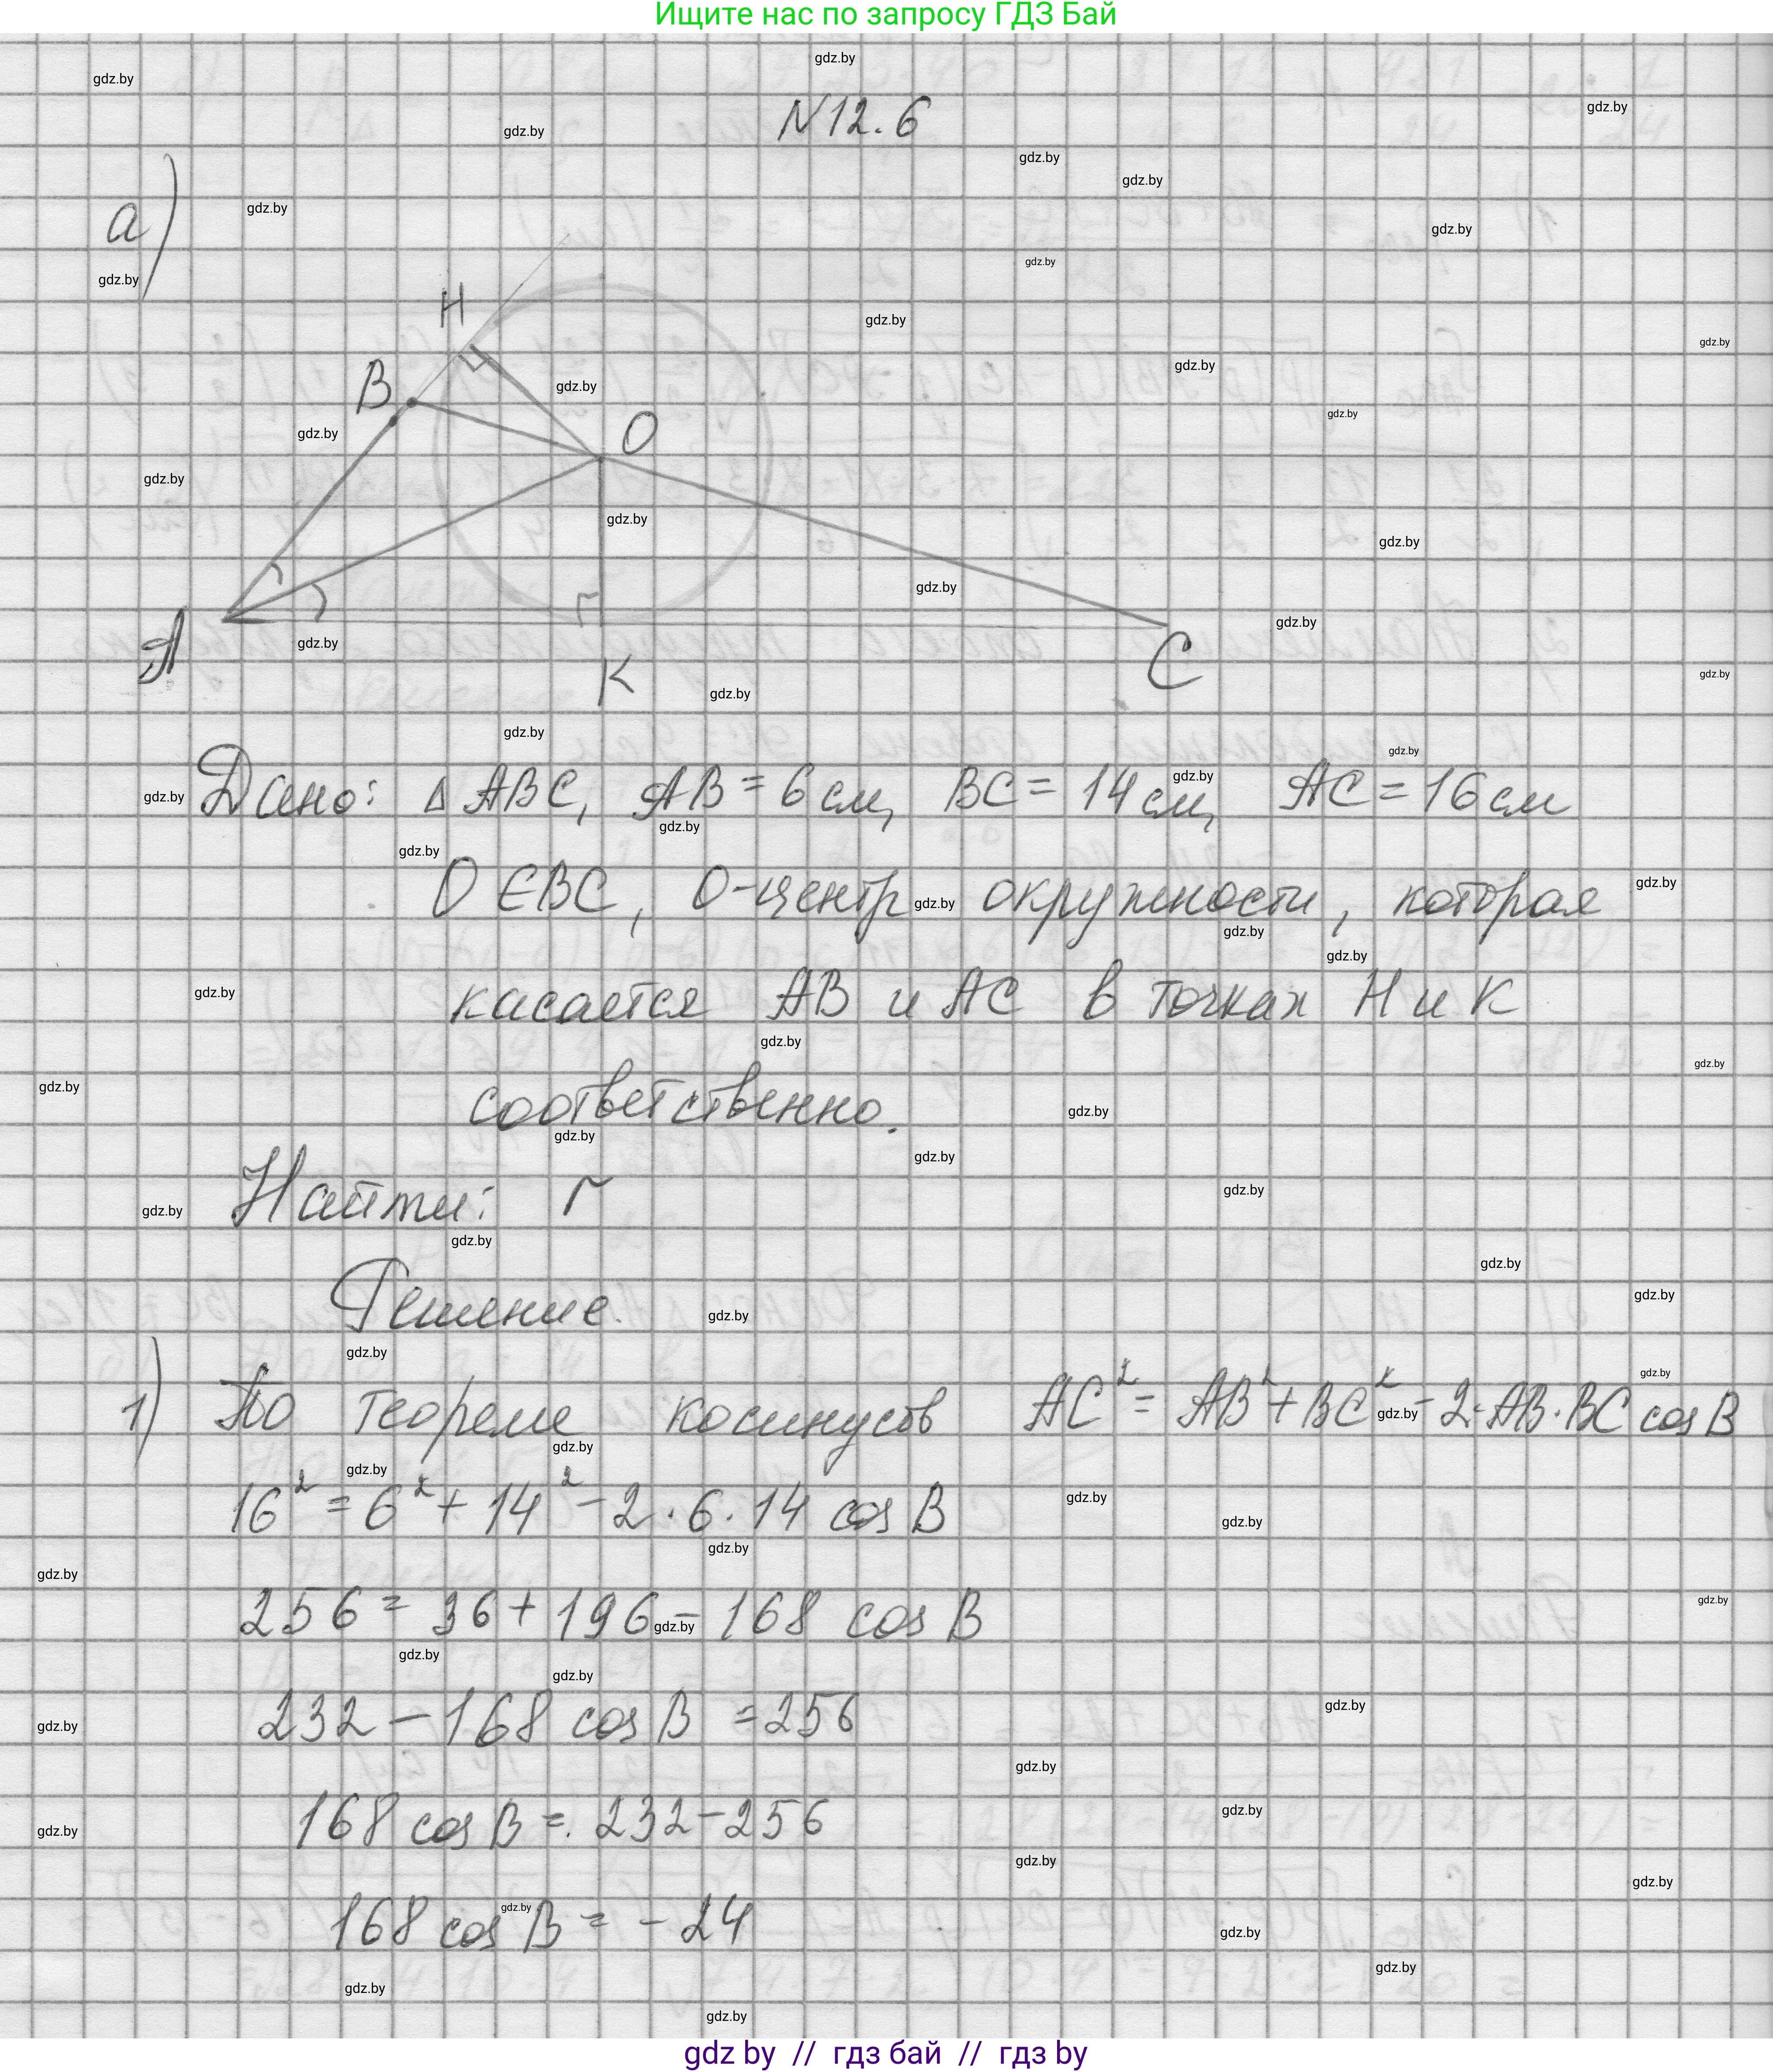 Ищите нас по запросу ГДЗ Бай
N12.6
а)
H
B
O
A
r
K
C
Дано: Δ ABC, AB = 6 см, BC = 14 см, AC = 16 см
O ∈ BC, O-центр окружности, которая
касается AB и AC в точках H и K
соответственно.
Найти: r
Решение.
1) По теореме косинусов AC² = AB² + BC² - 2·AB·BC cos B
16² = 6² + 14² - 2·6·14 cos B
256 = 36 + 196 - 168 cos B
232 - 168 cos B = 256
168 cos B = 232 - 256
168 cos B = - 24
gdz by // гдз бай // гдз by